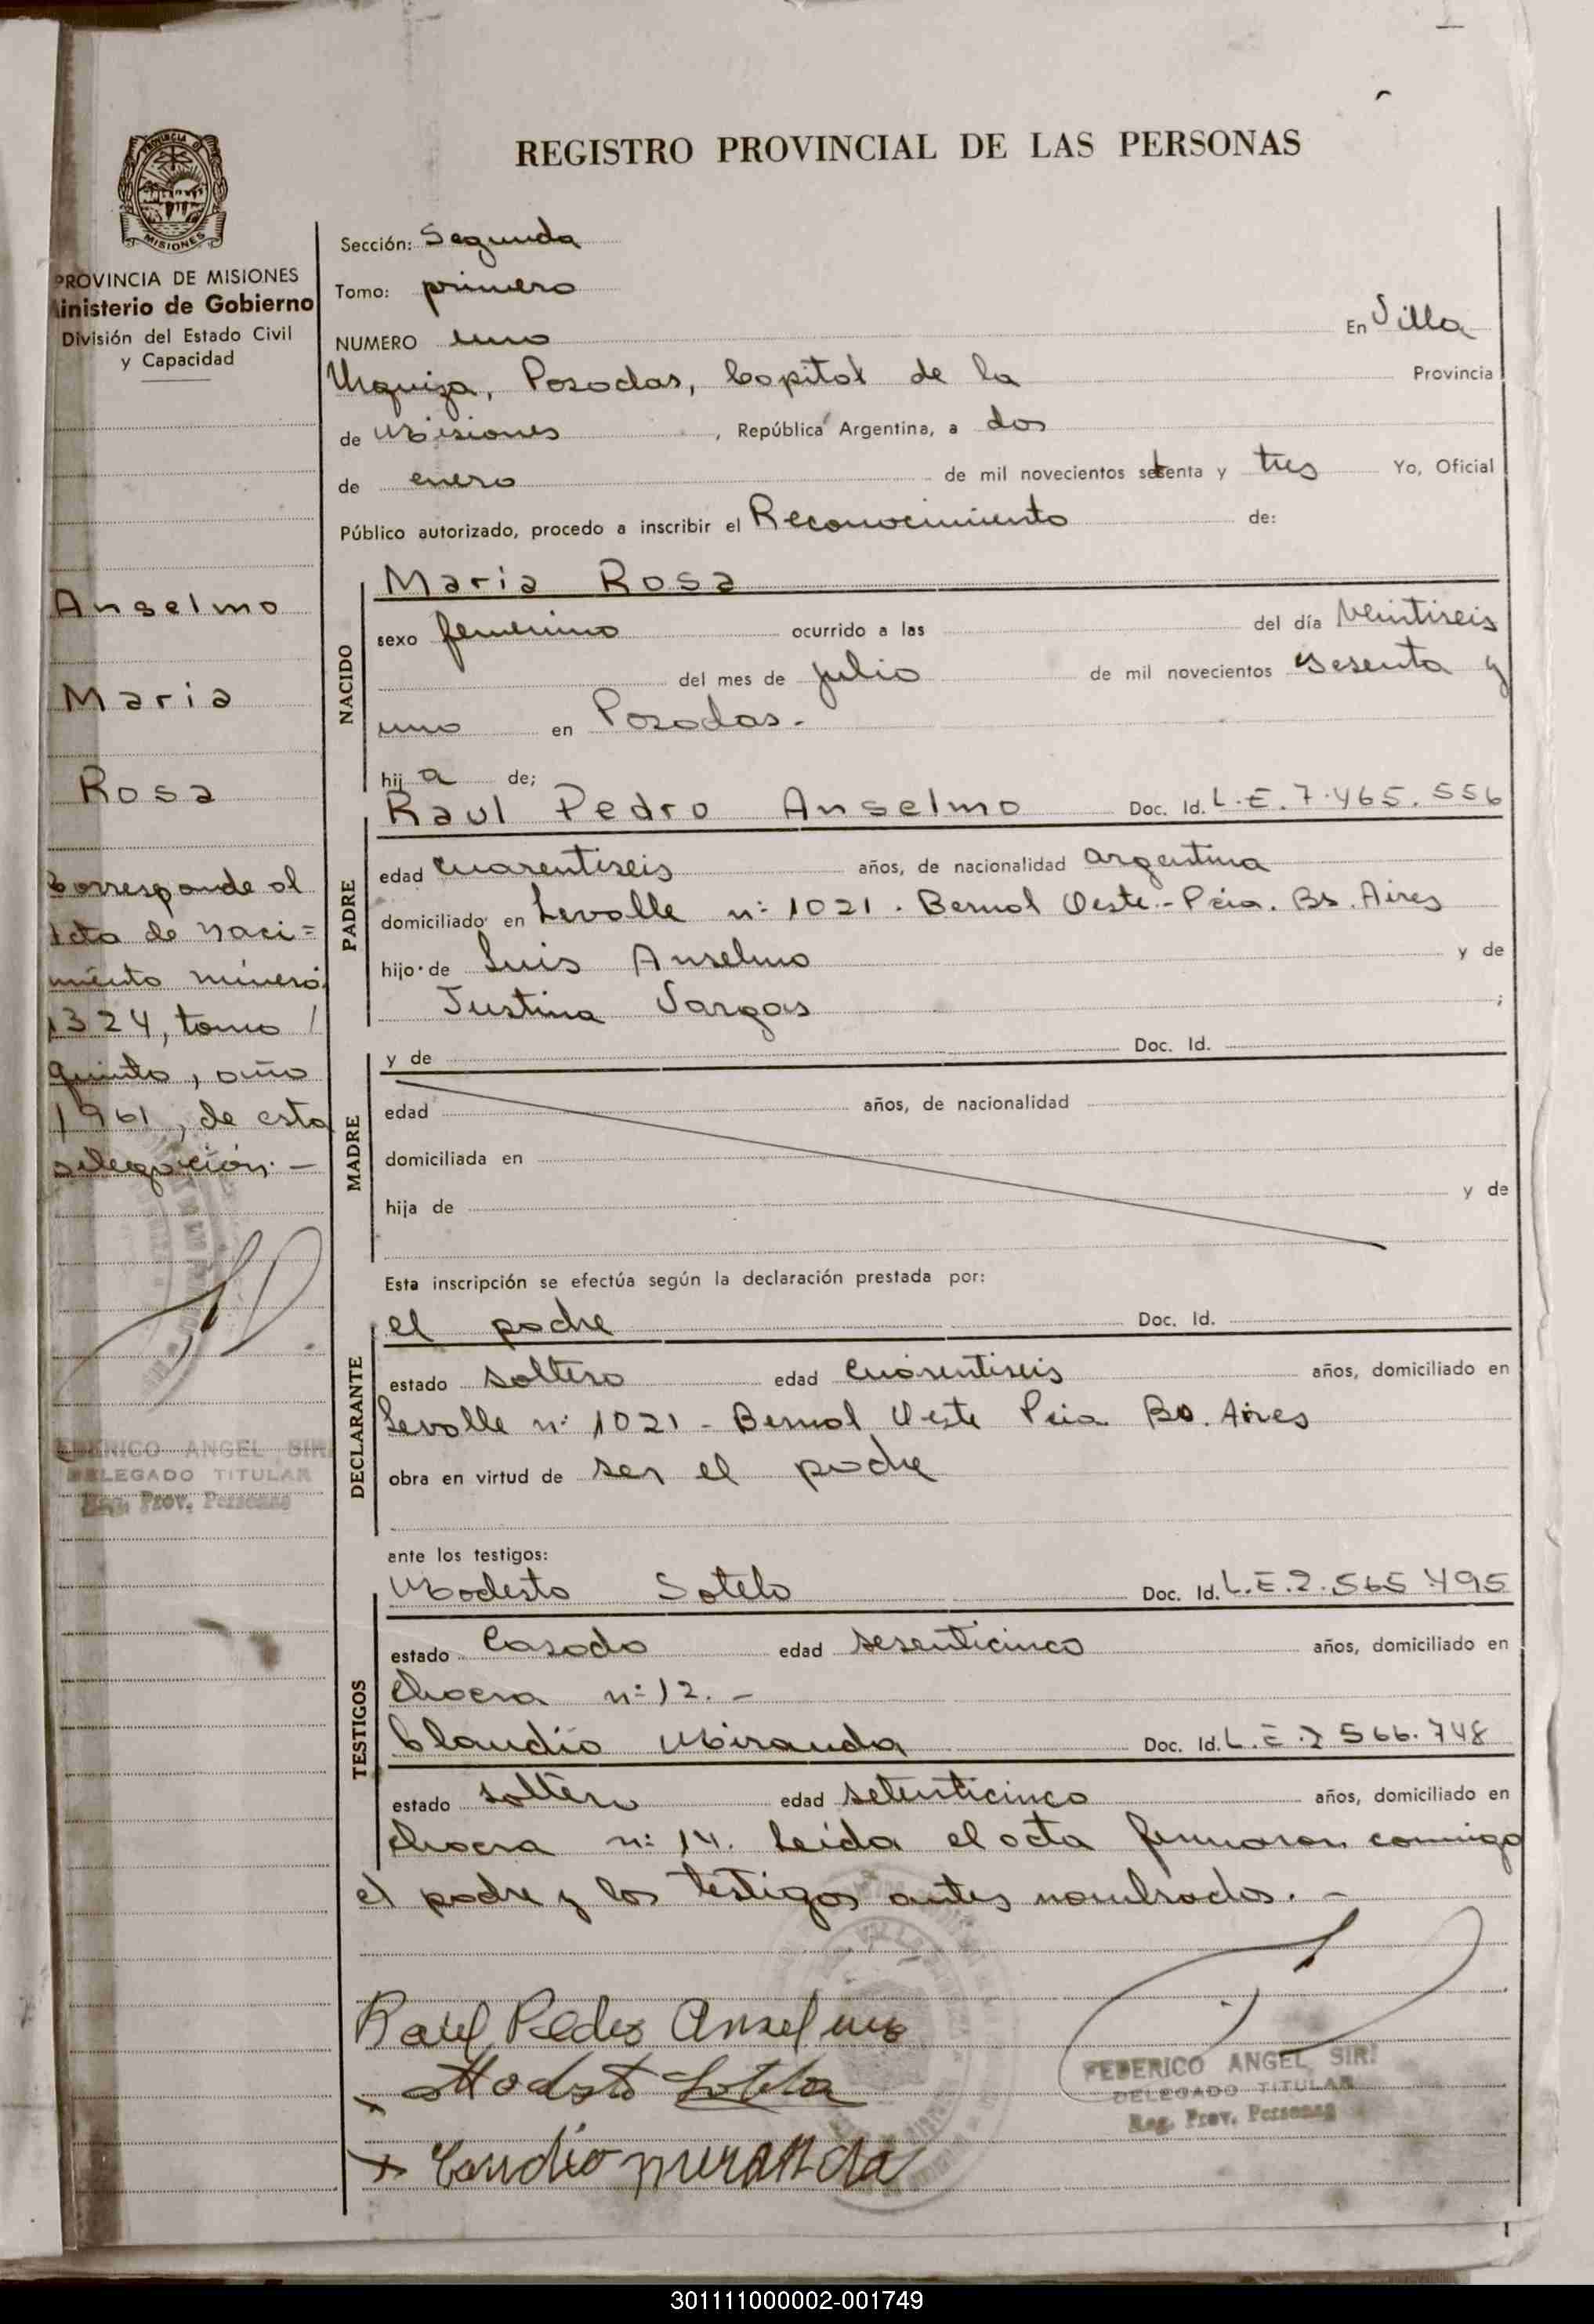 REGISTRO PROVINCIAL DE LAS PERSONAS
PROVINCIA DE MISIONES
Ministerio de Gobierno
División del Estado Civil
y Capacidad
Anselmo
Maria
Rosa
Corresponde al
acta de naci=
miento número
1324, tomo /
quinto, año
1961, de esta
delegación. -
FEDERICO ANGEL SIRI
DELEGADO TITULAR
Reg. Prov. Personas
Sección: Segunda
Tomo: primero
NUMERO uno En Villa
Urquiza, Posadas, Capital de la Provincia
de Misiones, República Argentina, a dos
de enero de mil novecientos setenta y tres Yo, Oficial
Público autorizado, procedo a inscribir el Reconocimiento de:
NACIDO
Maria Rosa
sexo femenino ocurrido a las del día veintiseis
del mes de julio de mil novecientos sesenta y
uno en Posadas.-
hija de;
PADRE
Raul Pedro Anselmo Doc. Id. L.E. 7.465.556
edad cuarentiseis años, de nacionalidad argentina
domiciliado en Levalle n: 1021. Bernal Oeste.- Pcia. Bs. Aires
hijo de Luis Anselmo y de
Justina Vargas ;
MADRE
y de Doc. Id.
edad años, de nacionalidad
domiciliada en
hija de y de
Esta inscripción se efectúa según la declaración prestada por:
DECLARANTE
el padre Doc. Id.
estado soltero edad cuarentiseis años, domiciliado en
Levalle n: 1021 - Bernal Oeste Pcia Bs. Aires
obra en virtud de ser el padre
ante los testigos:
TESTIGOS
Modesto Sotelo Doc. Id. L.E. 2.565.495
estado Casado edad sesenticinco años, domiciliado en
chacra n: 12. -
Claudio Miranda Doc. Id. L.E. 2 566.748
estado soltero edad setenticinco años, domiciliado en
chacra n: 14. Leída el acta firmaron conmigo
el padre y los testigos antes nombrados. -
Raul Pedro Anselmo
x Modesto Sotelo
x Claudio miranda
FEDERICO ANGEL SIRI
DELEGADO TITULAR
Reg. Prov. Personas
301111000002-001749